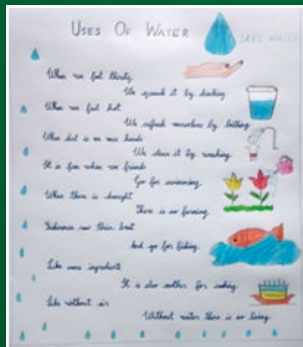 USES OF WATER
SAVE WATER
When we feel thirsty
We quench it by drinking
When we feel hot
We refresh ourselves by bathing
When dirt is on our hands
We clean it by washing
It is fun when we friends
Go for swimming.
When there is drought
There is no farming
Fishermen row their boat
And go for fishing.
Like some ingredients
It is also mother for cooking
Like without air
Without water there is no living